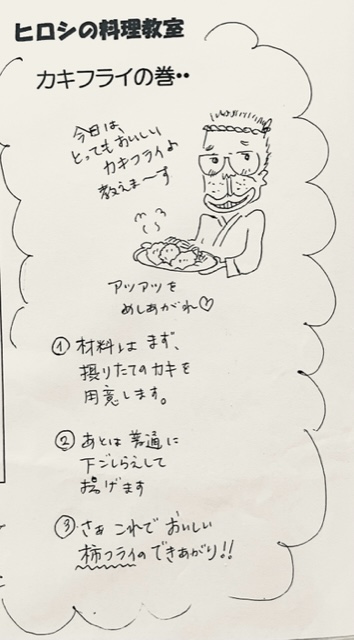 ヒロシの料理教室
カキフライの巻‥
今日は、
とってもおいしい
カキフライよ
教えま〜す
アツアツを
めしあがれ♡
① 材料は まず、
摂りたてのカキを
用意します。
② あとは 普通に
下ごしらえして
揚げます
③ さぁ これで おいしい
柿フライのできあがり!!